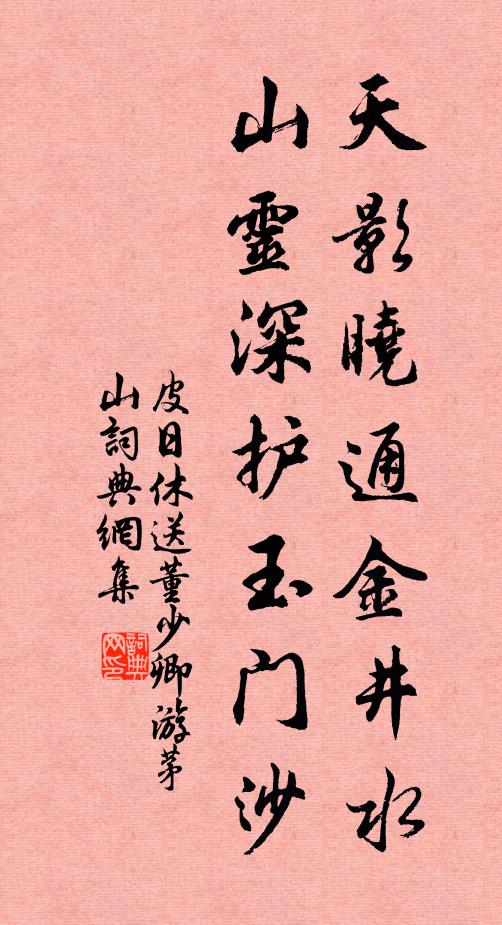 天影曉通金井水
山靈深护玉门沙
皮日休送董少卿游茅
山詞典網集
詞典
网印